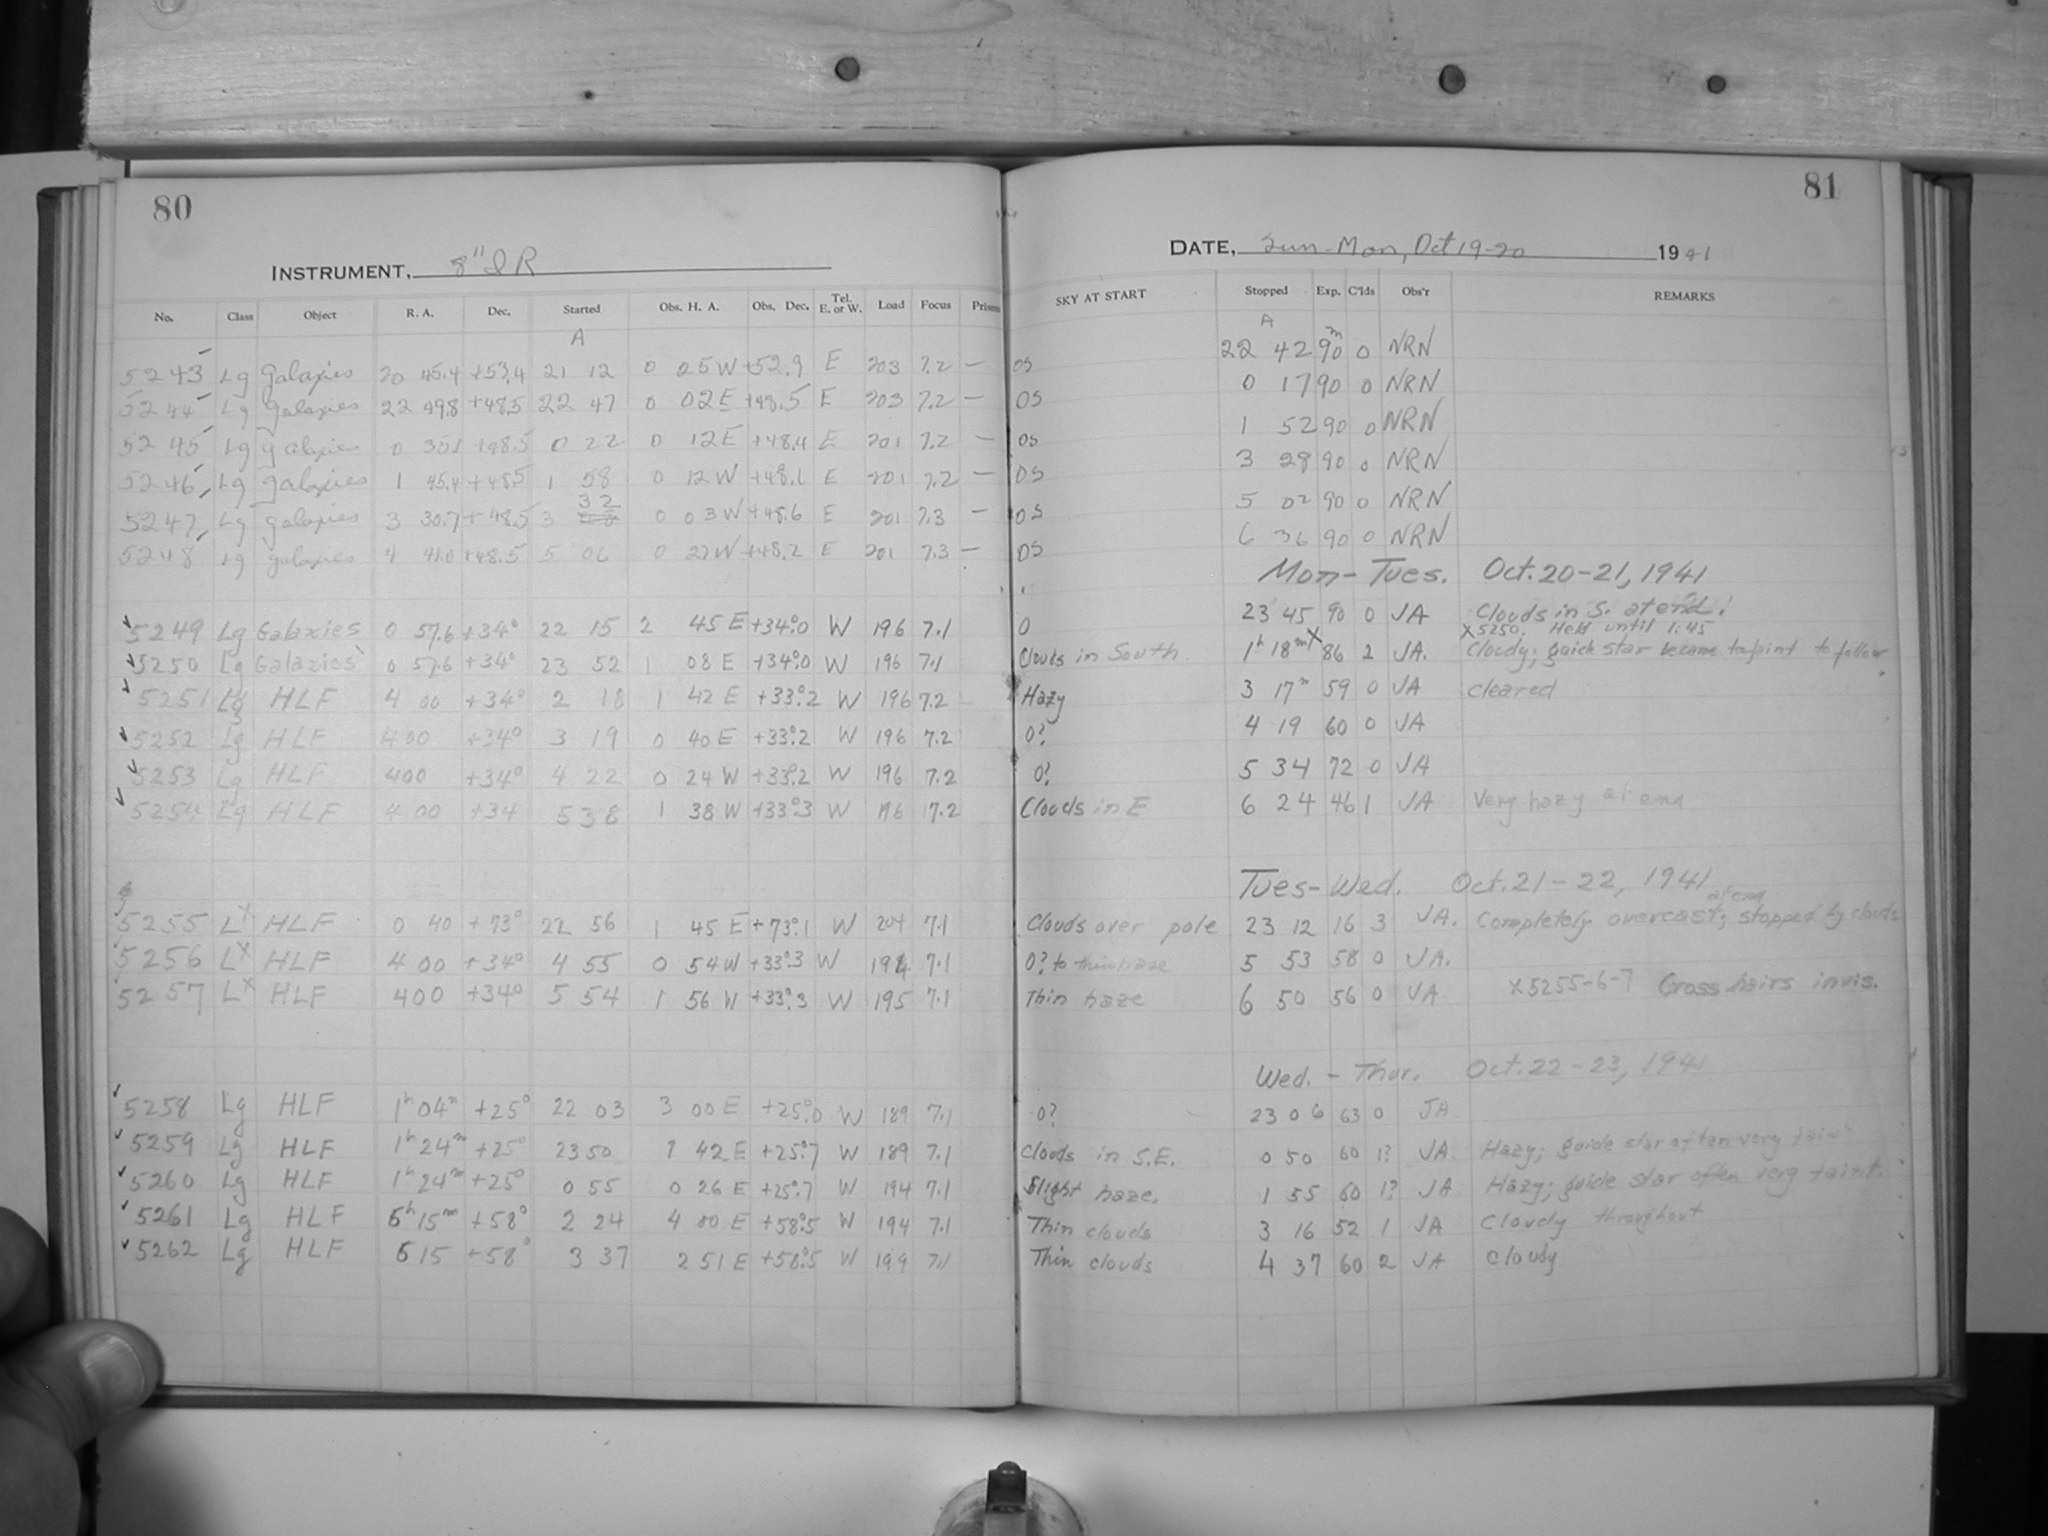 80
INSTRUMENT, 8" I R
No. Class Object R. A. Dec. Started Obs. H. A. Obs. Dec. Tel. E. or W. Load Focus Prism
A
5243 Lg galaxies 20 45.4 +53.4 21 12 0 25 W +52.9 E 203 7.2 —
5244 Lg galaxies 22 49.8 +48.5 22 47 0 02 E +48.5 E 203 7.2 —
5245 Lg galaxies 0 35.1 +48.5 0 22 0 12 E +48.4 E 201 7.2 —
5246 Lg galaxies 1 45.4 +48.5 1 58 0 12 W +48.1 E 201 7.2 —
5247 Lg galaxies 3 30.7 +48.5 3 32 0 03 W +48.6 E 201 7.3 —
5248 Lg galaxies 4 41.0 +48.5 5 06 0 27 W +48.2 E 201 7.3 —
5249 Lg Galaxies 0 57.6 +34° 22 15 2 45 E +34°.0 W 196 7.1
5250 Lg Galaxies 0 57.6 +34° 23 52 1 08 E +34°.0 W 196 7.1
5251 Lg HLF 4 00 +34° 2 18 1 42 E +33°.2 W 196 7.2
5252 Lg HLF 4 00 +34° 3 19 0 40 E +33°.2 W 196 7.2
5253 Lg HLF 4 00 +34° 4 22 0 24 W +33°.2 W 196 7.2
5254 Lg HLF 4 00 +34 5 38 1 38 W +33°.3 W 196 7.2
5255 Lx HLF 0 40 +73° 22 56 1 45 E +73°.1 W 204 7.1
5256 Lx HLF 4 00 +34° 4 55 0 54 W +33°.3 W 194 7.1
5257 Lx HLF 4 00 +34° 5 54 1 56 W +33°.3 W 195 7.1
5258 Lg HLF 1h 04m +25° 22 03 3 00 E +25°.0 W 189 7.1
5259 Lg HLF 1h 24m +25° 23 50 1 42 E +25°.7 W 189 7.1
5260 Lg HLF 1h 24m +25° 0 55 0 26 E +25°.7 W 194 7.1
5261 Lg HLF 6h 15m +58° 2 24 4 00 E +58°.5 W 194 7.1
5262 Lg HLF 6 15 +58° 3 37 2 51 E +58°.5 W 199 7.1
81
DATE, Sun-Mon, Oct 19-20 1941
SKY AT START Stopped Exp. C'lds Obs'r REMARKS
A
OS 22 42 90m 0 NRN
OS 0 17 90 0 NRN
OS 1 52 90 0 NRN
OS 3 28 90 0 NRN
OS 5 02 90 0 NRN
OS 6 36 90 0 NRN
Mon-Tues. Oct. 20-21, 1941
0 23 45 90 0 JA Clouds in S. at end.
x5250. Held until 1:45
Clouds in South 1h 18m x 86 2 JA. Cloudy; guide star became too faint to follow
Hazy 3 17m 59 0 JA cleared
0? 4 19 60 0 JA
0? 5 34 72 0 JA
Clouds in E 6 24 46 1 JA Very hazy at end
Tues-Wed. Oct. 21-22, 1941
at end
Clouds over pole 23 12 16 3 JA. Completely overcast; stopped by clouds
0? to thin haze 5 53 58 0 JA.
Thin haze 6 50 56 0 JA x5255-6-7 Cross hairs invis.
Wed. - Thur. Oct. 22-23, 1941
0? 23 06 63 0 JA
Clouds in S.E. 0 50 60 1? JA Hazy; guide star often very faint
Slight haze. 1 55 60 1? JA Hazy; guide star often very faint.
Thin clouds 3 16 52 1 JA Cloudy throughout
Thin clouds 4 37 60 2 JA cloudy